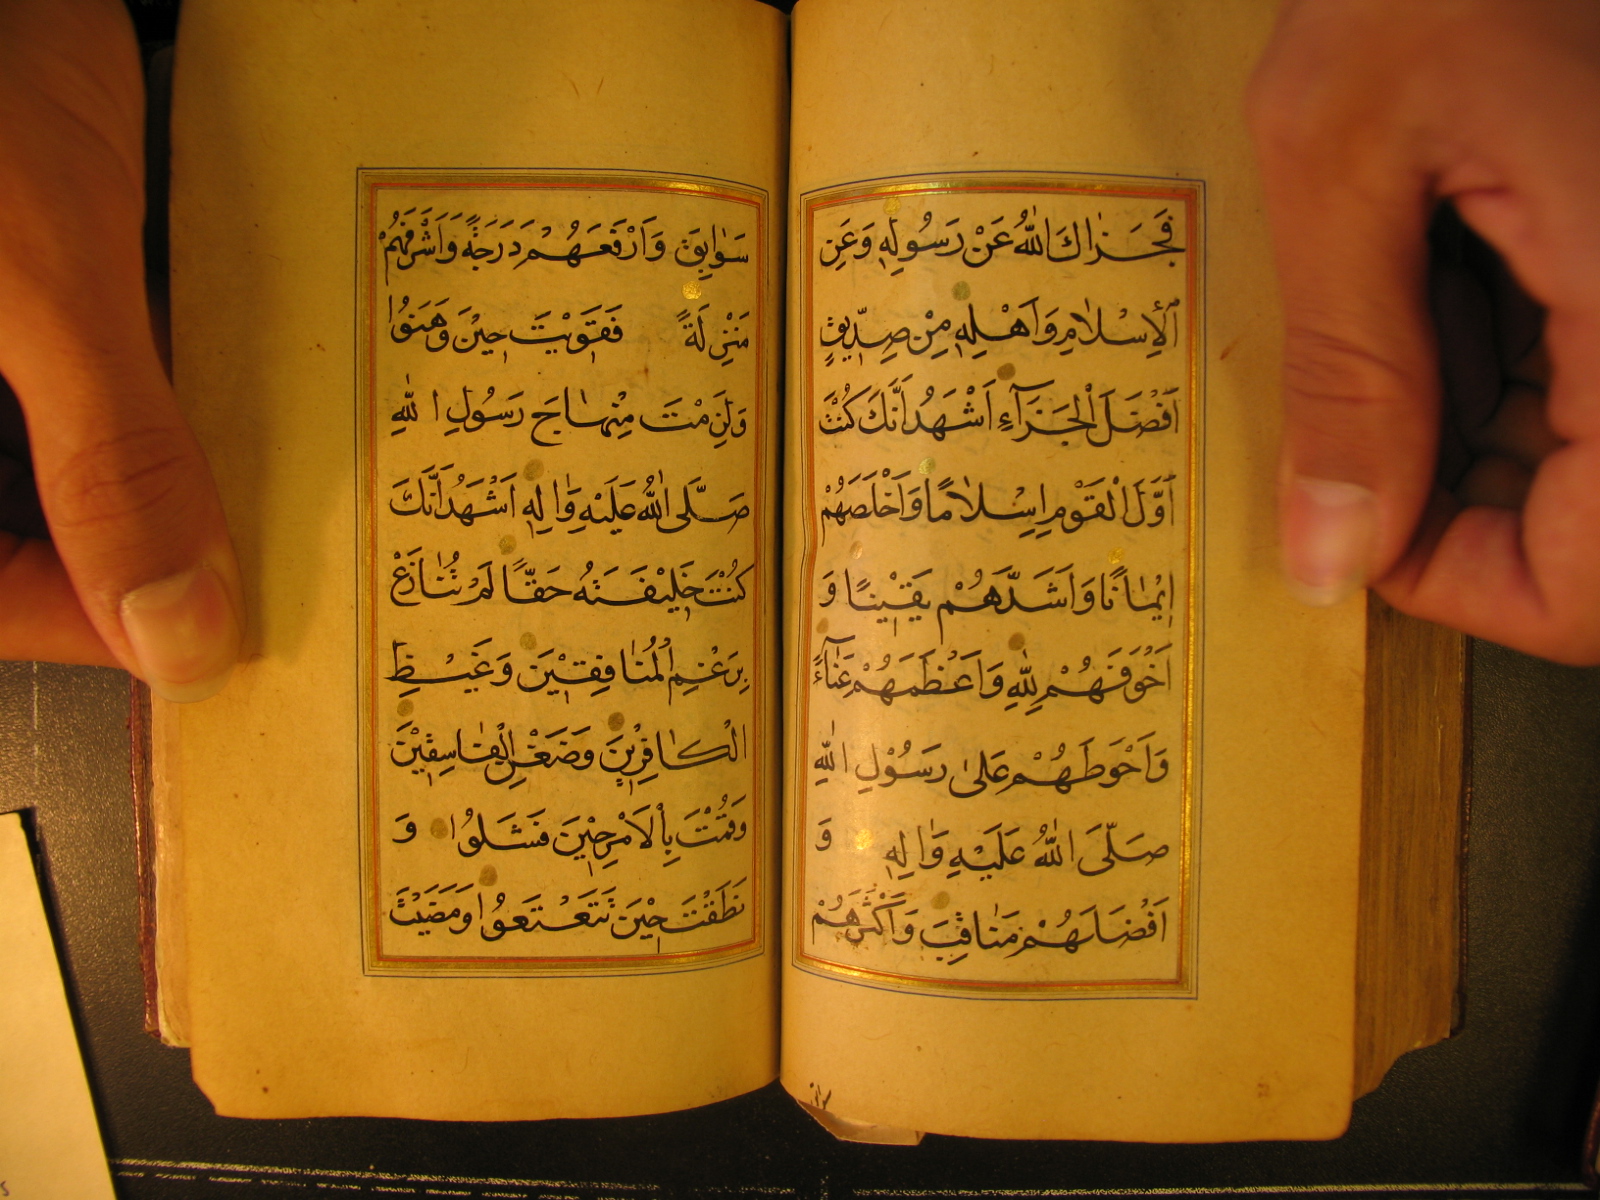 فَجَزٰاكَ اللّٰهُ عَنْ رَسُولِهٖ وَعَنِ
الْاِسْلٰامِ وَاَهْلِهٖ مِنْ صِدّٖيقٍ
اَفْضَلَ الْجَزَآءِ اَشْهَدُ اَنَّكَ كُنْتَ
اَوَّلَ الْقَوْمِ اِسْلَامًا وَاَخْلَصَهُمْ
اٖيْمٰانًا وَاَشَدَّهُمْ يَقٖينًا وَ
اَخْوَفَهُمْ لِلّٰهِ وَاَعْظَمَهُمْ عَنٰآءً
وَاَحْوَطَهُمْ عَلىٰ رَسُوْلِ اللّٰهِ
صَلَّى اللّٰهُ عَلَيْهِ وَاٰلِهٖ وَ
اَفْضَلَهُمْ مَنٰاقِبَ وَاَكْثَرَهُمْ
سَوٰابِقَ وَاَرْفَعَهُمْ دَرَجَةً وَاَشْرَفَهُمْ
مَنْزِلَةً فَقَوٖيتَ حٖيْنَ وَهَنُوْا
وَلَزِمْتَ مِنْهٰاجَ رَسُوْلِ اللّٰهِ
صَلَّى اللّٰهُ عَلَيْهِ وَاٰلِهٖ اَشْهَدُ اَنَّكَ
كُنْتَ خَلٖيْفَتَهُ حَقًّا لَمْ تُنٰازَعْ
بِرَغْمِ الْمُنٰافِقٖيْنَ وَغَيْظِ
الْكٰافِرٖيْنَ وَضَغْنِ الْفٰاسِقٖيْنَ
وَقُمْتَ بِالْاَمْرِ حٖيْنَ فَشَلُوْا وَ
نَطَقْتَ حٖيْنَ تَتَعْتَعُوْا وَمَضَيْتَ
سوابق